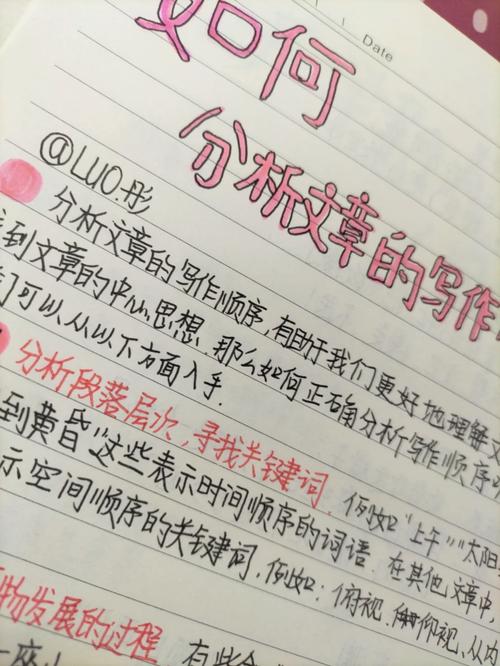 Date
如何
分析文章的写作
@LUO.彤
分析文章的写作顺序,有助于我们更好地理解文
到文章的中心思想.那么如何正确分析写作顺序
们可以从以下方面入手.
分析段落层次,寻找关键词.例如"上午""太阳
到黄昏"这些表示时间顺序的词语.在其他文章中,
示空间顺序的关键词.例如:俯视.仰视.从
物发展的过程 有些
一座